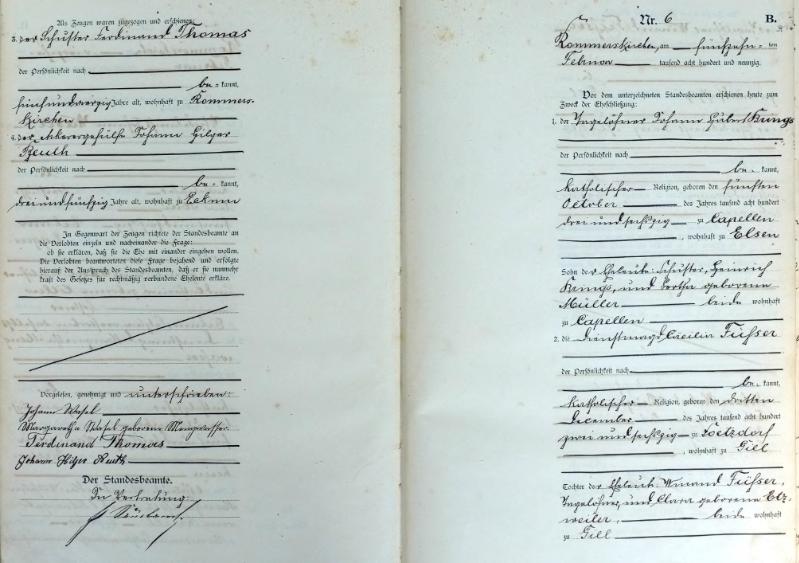 Als Zeugen waren zugezogen und erschienen:
3. der Schuster Ferdinand Thomas
der Persönlichkeit nach
be- kannt,
fünfundvierzig Jahre alt, wohnhaft zu Rommers-
kirchen
4. der Ackerergehülfe Johann Hilger
Reuth
der Persönlichkeit nach
be- kannt,
dreiundfünfzig Jahre alt, wohnhaft zu Eckum
In Gegenwart der Zeugen richtete der Standesbeamte an
die Verlobten einzeln und nacheinander die Frage:
ob sie erklären, daß sie die Ehe mit einander eingehen wollen.
Die Verlobten beantworteten diese Frage bejahend und erfolgte
hierauf der Ausspruch des Standesbeamten, daß er sie nunmehr
kraft des Gesetzes für rechtmäßig verbundene Eheleute erkläre.
Vorgelesen, genehmigt und unterschrieben:
Johann Wesel
Margaretha Wesel geborene
Ferdinand Thomas
Johann Hilger Reuth
Der Standesbeamte.
In Vertretung
Nr. 6 B.
Rommerskirchen, am fünfzehn- ten
Februar tausend acht hundert und neunzig.
Vor dem unterzeichneten Standesbeamten erschienen heute zum
Zweck der Eheschließung:
1. der Tagelöhner Johann Hubert Krings
der Persönlichkeit nach
be- kannt,
katholischer Religion, geboren den fünften
October des Jahres tausend acht hundert
drei und sechszig zu Capellen
, wohnhaft zu Elsen
Sohn der Eheleute: Schuster, Heinrich
Krings, und Bertha geborene
Müller beide wohnhaft
zu Capellen
2. die Dienstmagd Cäcilia Füßer
der Persönlichkeit nach
be- kannt,
katholischer Religion, geboren den dritten
December des Jahres tausend acht hundert
zwei und sechszig zu
, wohnhaft zu Gill
Tochter der Eheleute Winand Füßer,
Tagelöhner, und Clara geborene Etz-
weiler, beide wohnhaft
zu Gill